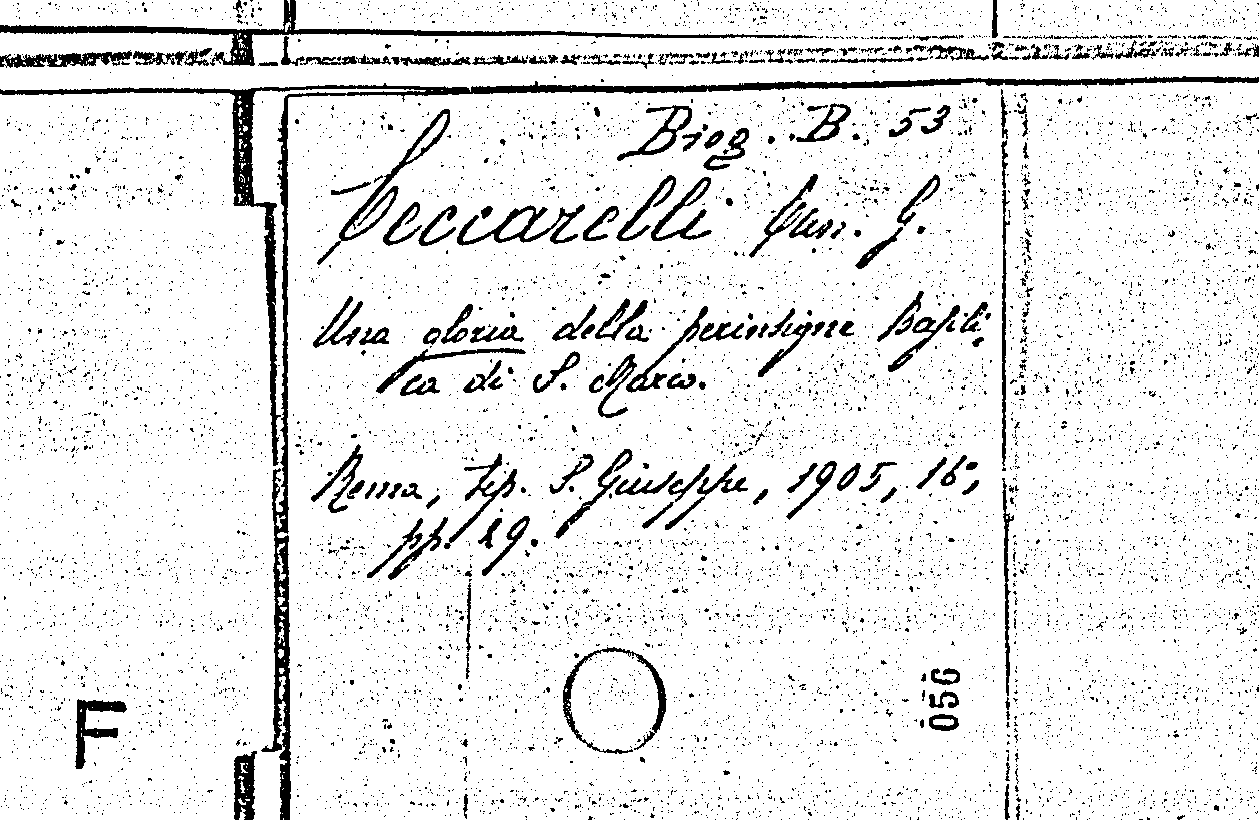 Biog. B. 53
Ceccarelli Can. G.
Una gloria della perinsigne Basili-
ca di S. Marco.
Roma, tip. S. Giuseppe, 1905, 16°,
pp. 29.
056
F